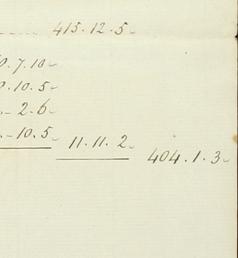 415.12.5
0.7.10
0.10.5
.. 2.6
.. 10.5 11.11.2 404.1.3